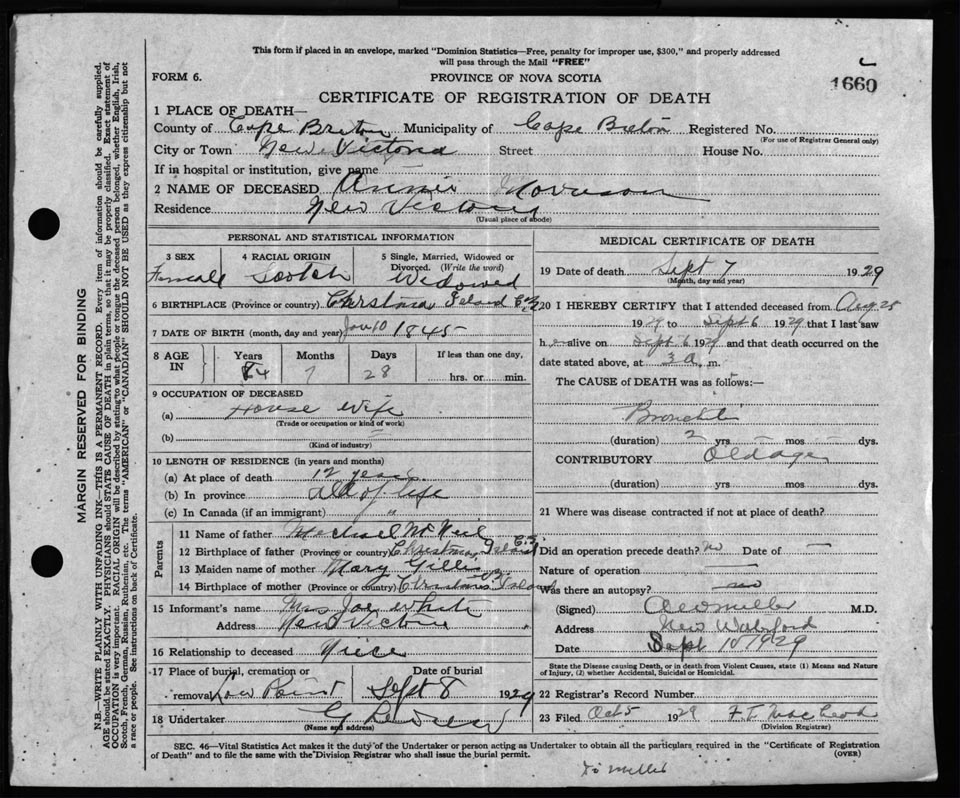 This form if placed in an envelope, marked "Dominion Statistics—Free, penalty for improper use, $300," and properly addressed
will pass through the Mail "FREE"
FORM 6.
PROVINCE OF NOVA SCOTIA
1660
CERTIFICATE OF REGISTRATION OF DEATH
1 PLACE OF DEATH—
County of Cape Breton Municipality of Cape Breton Registered No.
(For use of Registrar General only)
City or Town New Victoria Street House No.
If in hospital or institution, give name
2 NAME OF DECEASED Annie Morrison
Residence New Victoria
(Usual place of abode)
PERSONAL AND STATISTICAL INFORMATION
3 SEX
Female
4 RACIAL ORIGIN
Scotch
5 Single, Married, Widowed or Divorced. (Write the word)
Widowed
6 BIRTHPLACE (Province or country) Christmas Island C.B.
7 DATE OF BIRTH (month, day and year) Jan 10 1845
8 AGE IN
Years Months Days If less than one day,
84 7 28 hrs. or min.
9 OCCUPATION OF DECEASED
(a) House wife
(Trade or occupation or kind of work)
(b)
(Kind of industry)
10 LENGTH OF RESIDENCE (in years and months)
(a) At place of death 12 years
(b) In province All of life
(c) In Canada (if an immigrant) "
Parents
11 Name of father Michael McNeil
12 Birthplace of father (Province or country) Christmas Island C.B.
13 Maiden name of mother Mary Gillis
14 Birthplace of mother (Province or country) Christmas Island C.B.
15 Informant's name Mrs Joe White
Address New Victoria
16 Relationship to deceased Niece
17 Place of burial, cremation or removal Low Point
Date of burial Sept 8 1929
18 Undertaker
(Name and address)
MEDICAL CERTIFICATE OF DEATH
19 Date of death Sept 7 1929
(Month, day and year)
20 I HEREBY CERTIFY that I attended deceased from Aug 25
1929 to Sept 6 1929 that I last saw
her alive on Sept 6 1929 and that death occurred on the
date stated above, at 3 a. m.
The CAUSE OF DEATH was as follows:—
Bronchitis
(duration) 2 yrs — mos — dys.
CONTRIBUTORY Old age
(duration) yrs mos dys.
21 Where was disease contracted if not at place of death?
Did an operation precede death? no Date of —
Nature of operation —
Was there an autopsy? no
(Signed) Miller M.D.
Address New Waterford
Date Sept 10 1929
State the Disease causing Death, or in death from Violent Causes, state (1) Means and Nature of Injury, (2) whether Accidental, Suicidal or Homicidal.
22 Registrar's Record Number
23 Filed Oct 5 1929 F. T. MacLeod
(Division Registrar)
SEC. 46—Vital Statistics Act makes it the duty of the Undertaker or person acting as Undertaker to obtain all the particulars required in the "Certificate of Registration
of Death" and to file the same with the Division Registrar who shall issue the burial permit.
(OVER)
Dr Miller
MARGIN RESERVED FOR BINDING
N.B.—WRITE PLAINLY WITH UNFADING INK—THIS IS A PERMANENT RECORD. Every item of information should be carefully supplied.
AGE should be stated EXACTLY. PHYSICIANS should STATE CAUSE OF DEATH in plain terms, so that it may be properly classified. Exact statement of
OCCUPATION is very important. RACIAL ORIGIN will be described by stating to what people or tongue the deceased person belonged, whether English, Irish,
Scotch, French, German, Russian, Ruthenian, etc. The terms "AMERICAN" or "CANADIAN" SHOULD NOT BE USED as they express citizenship but not
a race or people. See instructions on back of Certificate.